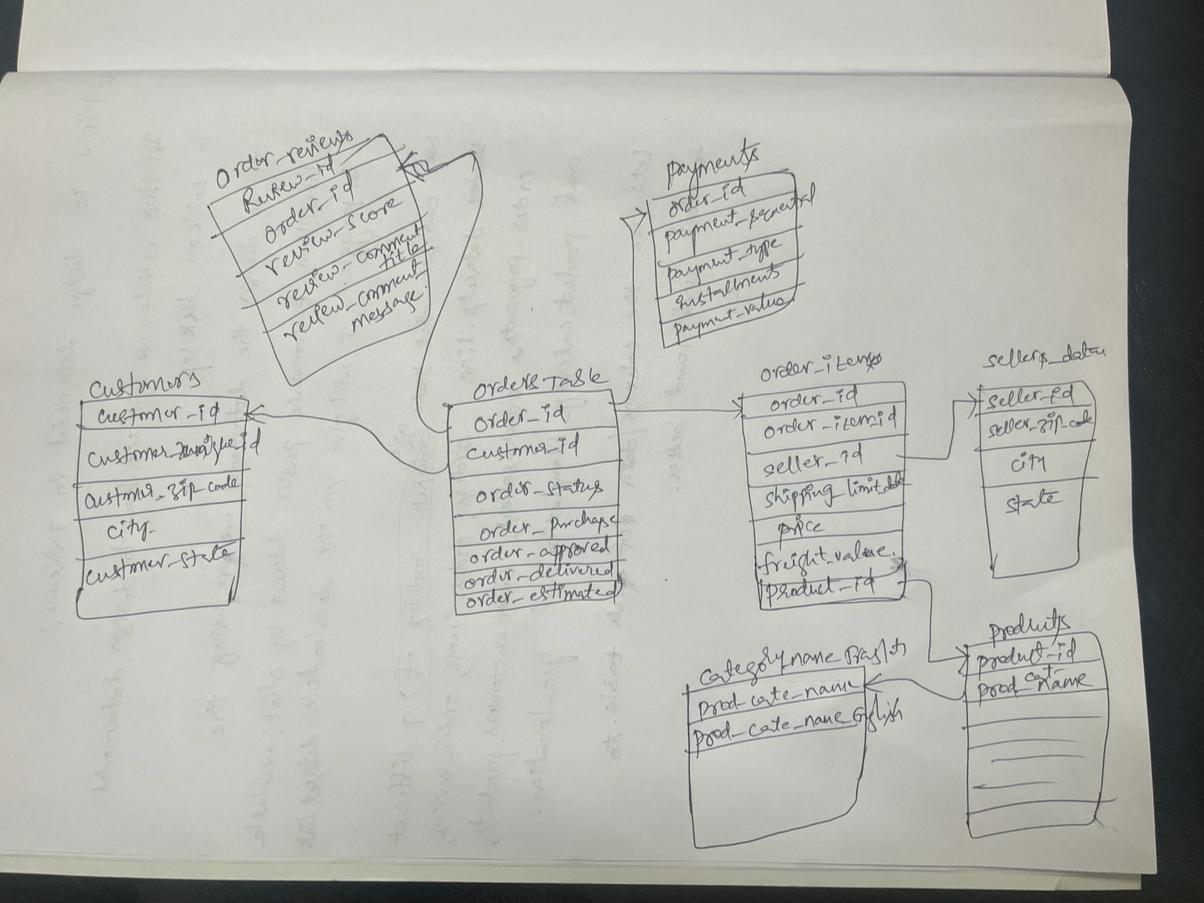 order_reviews
Review_id
order_id
review_score
review_comment
title
review_comment
message
payments
order_id
payment_sequential
payment_type
installments
payment_value
customers
customer_id
customer_unique_id
customer_zip_code
city
customer_state
orders Task
order_id
customer_id
order_status
order_purchase
order_approved
order_delivered
order_estimated
order_items
order_id
order_itemid
seller_id
shipping limit
price
freight_value
product_id
sellers_data
seller_id
seller_zip_code
city
state
products
product_id
prod_cat_name
category name
prod_cate_name
prod_cate_name_English